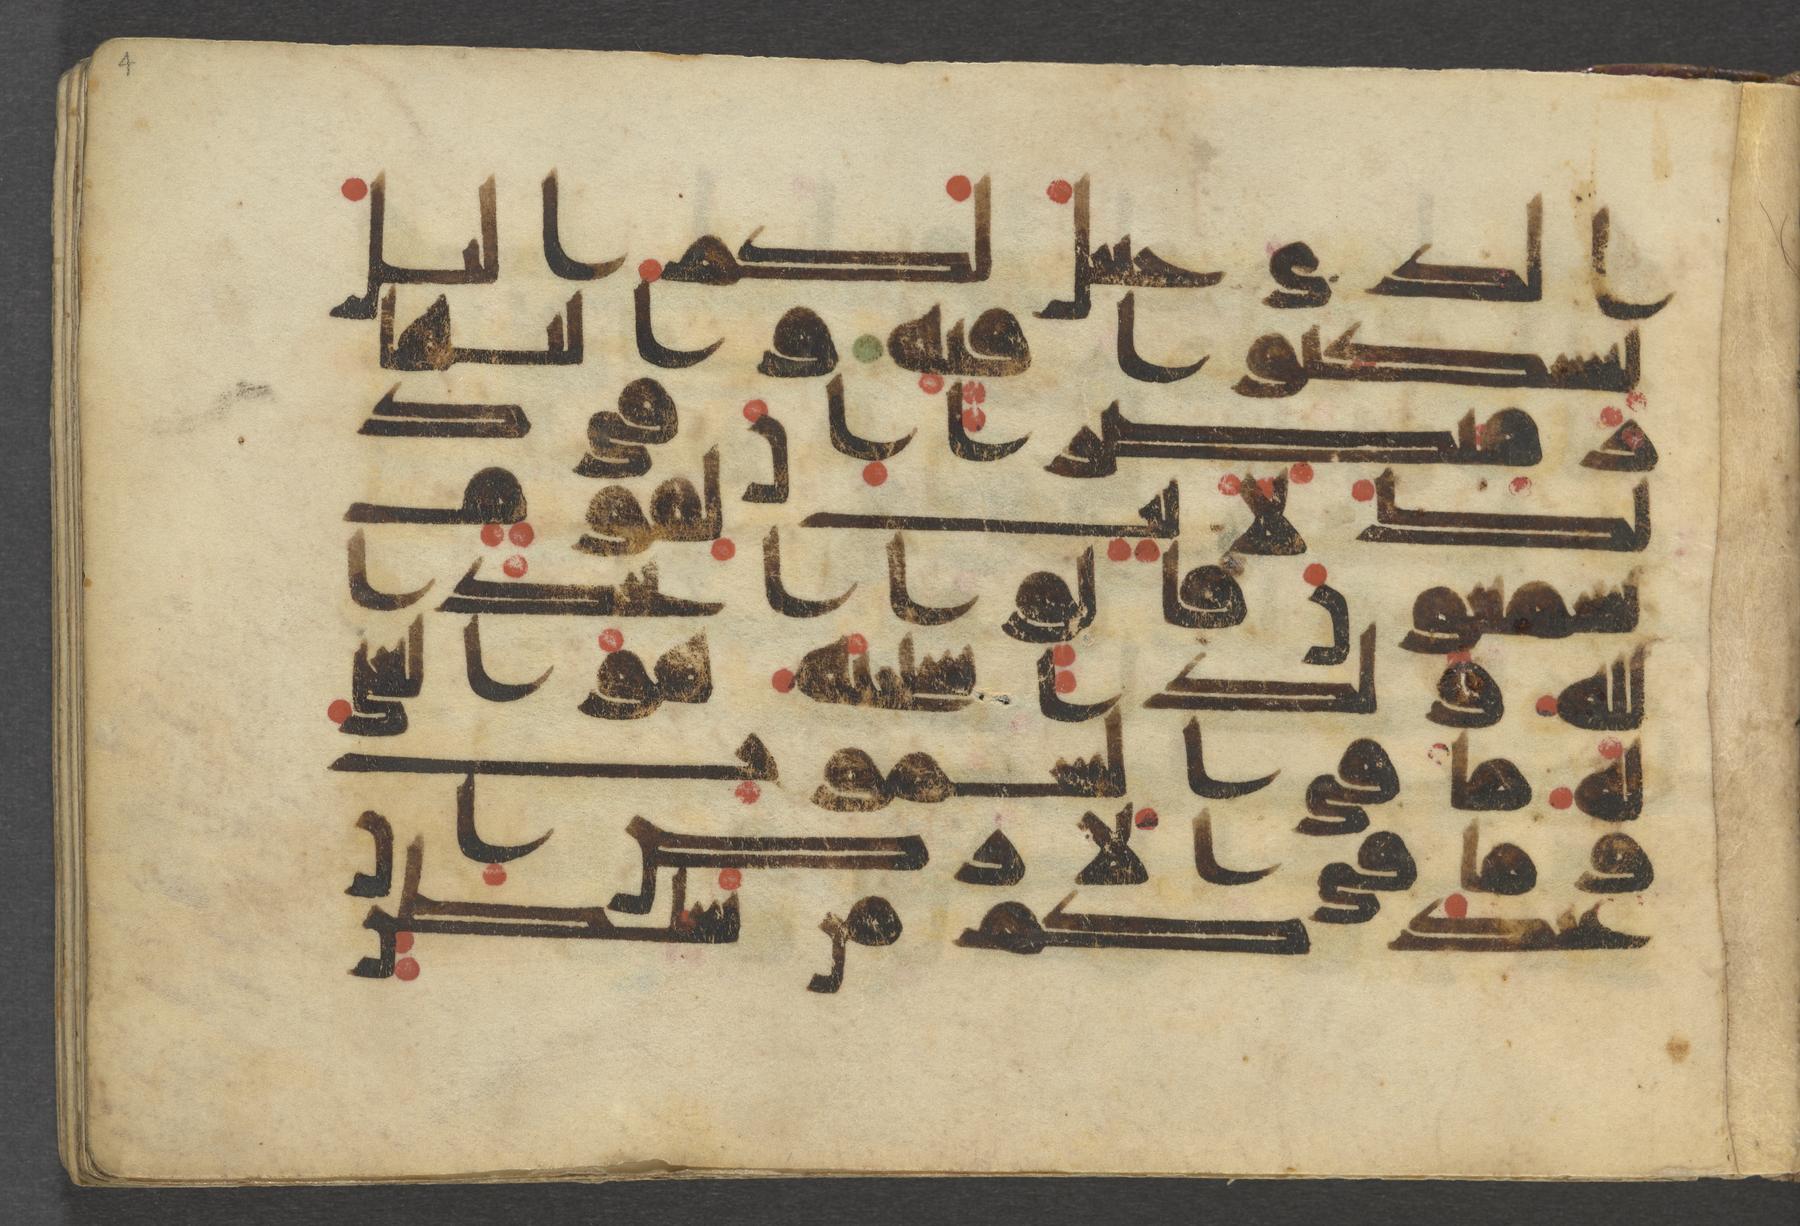 4
الذى جعل لكم اليل
لتسكنوا فيه والنها
ر مبصرا ان فى ذ
لك لايت لقوم
يسمعون قالوا اتخذ ا
لله ولدا سبحنه هو الغنى
له ما فى السموت
وما فى الارض ان
عندكم من سلطن